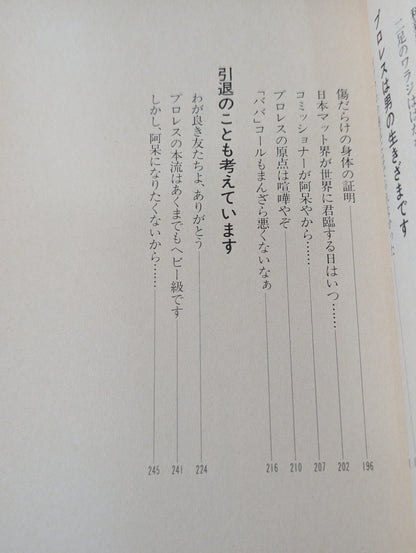 プロレスは男の生きざまです
傷だらけの身体の証明 196
日本マット界が世界に君臨する日はいつ…… 202
コミッショナーが阿呆やから…… 207
プロレスの原点は喧嘩やぞ 210
「ババ」コールもまんざら悪くないなぁ 216
引退のことも考えています
わが良き友たちよ、ありがとう 224
プロレスの本流はあくまでもヘビー級です 241
しかし、阿呆になりたくないから…… 245